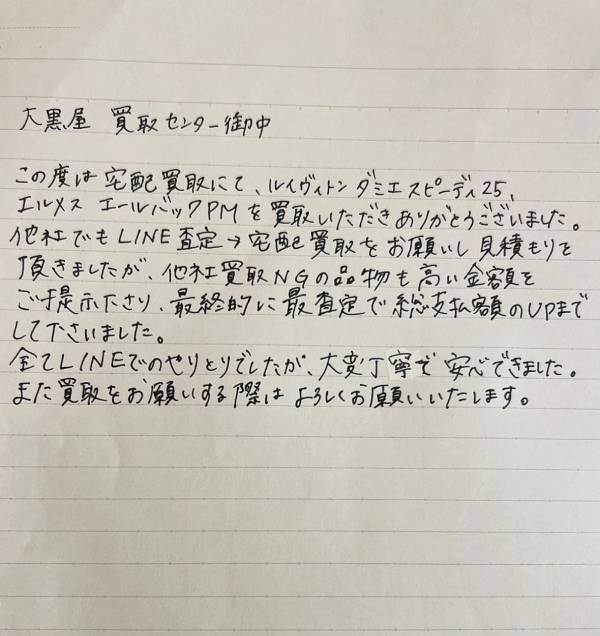 大黒屋 買取センター御中
この度は宅配買取にて、ルイヴィトンダミエスピーディ25、
エルメス エールバックPMを買取いただきありがとうございました。
他社でもLINE査定→宅配買取をお願いし見積もりを
頂きましたが、他社買取NGの品物も高い金額を
ご提示下さり、最終的に最査定で総支払額のUPまで
して下さいました。
全てLINEでのやりとりでしたが、大変丁寧で安心できました。
また買取をお願いする際はよろしくお願いいたします。